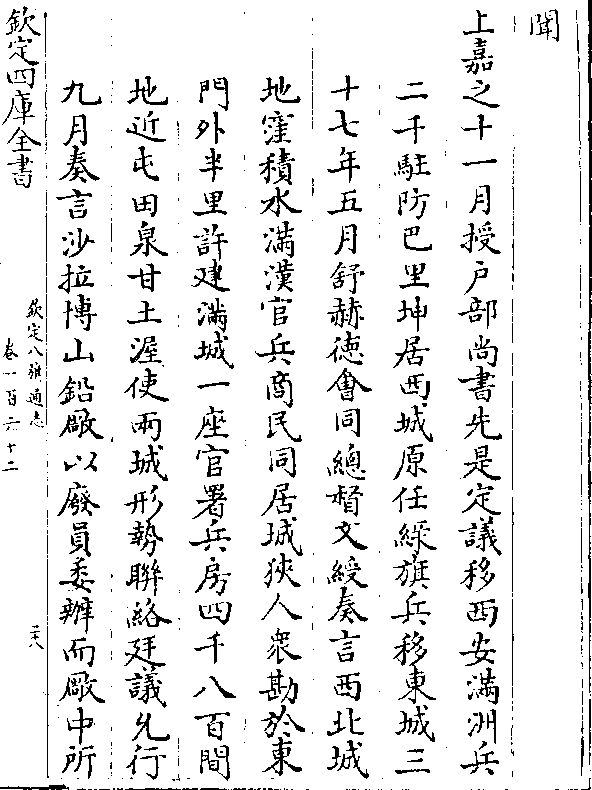 聞
上嘉之十一月授戶部尚書先是定議移西安滿洲兵
二千駐防巴里坤居西城原任綠旗兵移東城三
十七年五月舒赫德會同總督文綬奏言西北城
地窪積水滿漢官兵商民同居城狹人衆勘於東
門外半里許建滿城一座官署兵房四千八百間
地近屯田泉甘土渥使兩城形勢聯絡廷議允行
九月奏言沙拉博山鉛厰以廢員委辦而厰中所
欽定四庫全書
欽定八旗通志
卷一百六十二
二六